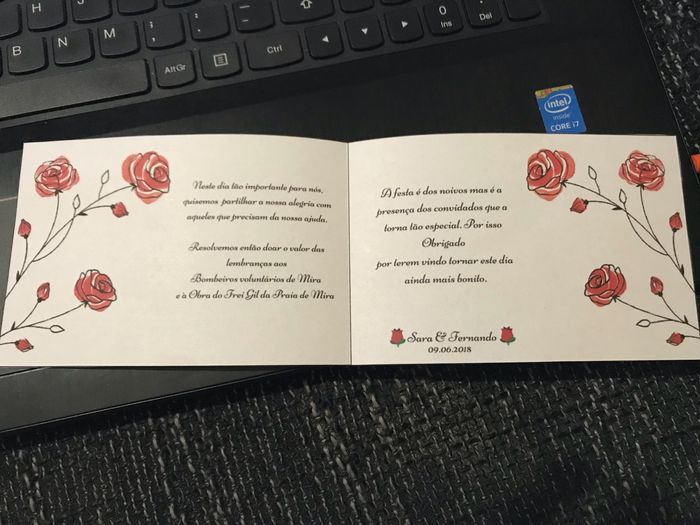 H
J
B
N
M
;
:
AltGr
Ctrl
0
Ins
Del
intel
inside
CORE i7
Neste dia tão importante para nós,
quisemos partilhar a nossa alegria com
aqueles que precisam da nossa ajuda.
Resolvemos então doar o valor das
lembranças aos
Bombeiros voluntários de Mira
e à Obra do Frei Gil da Praia de Mira
A festa é dos noivos mas é a
presença dos convidados que a
torna tão especial. Por isso
Obrigado
por terem vindo tornar este dia
ainda mais bonito.
Sara & Fernando
09.06.2018